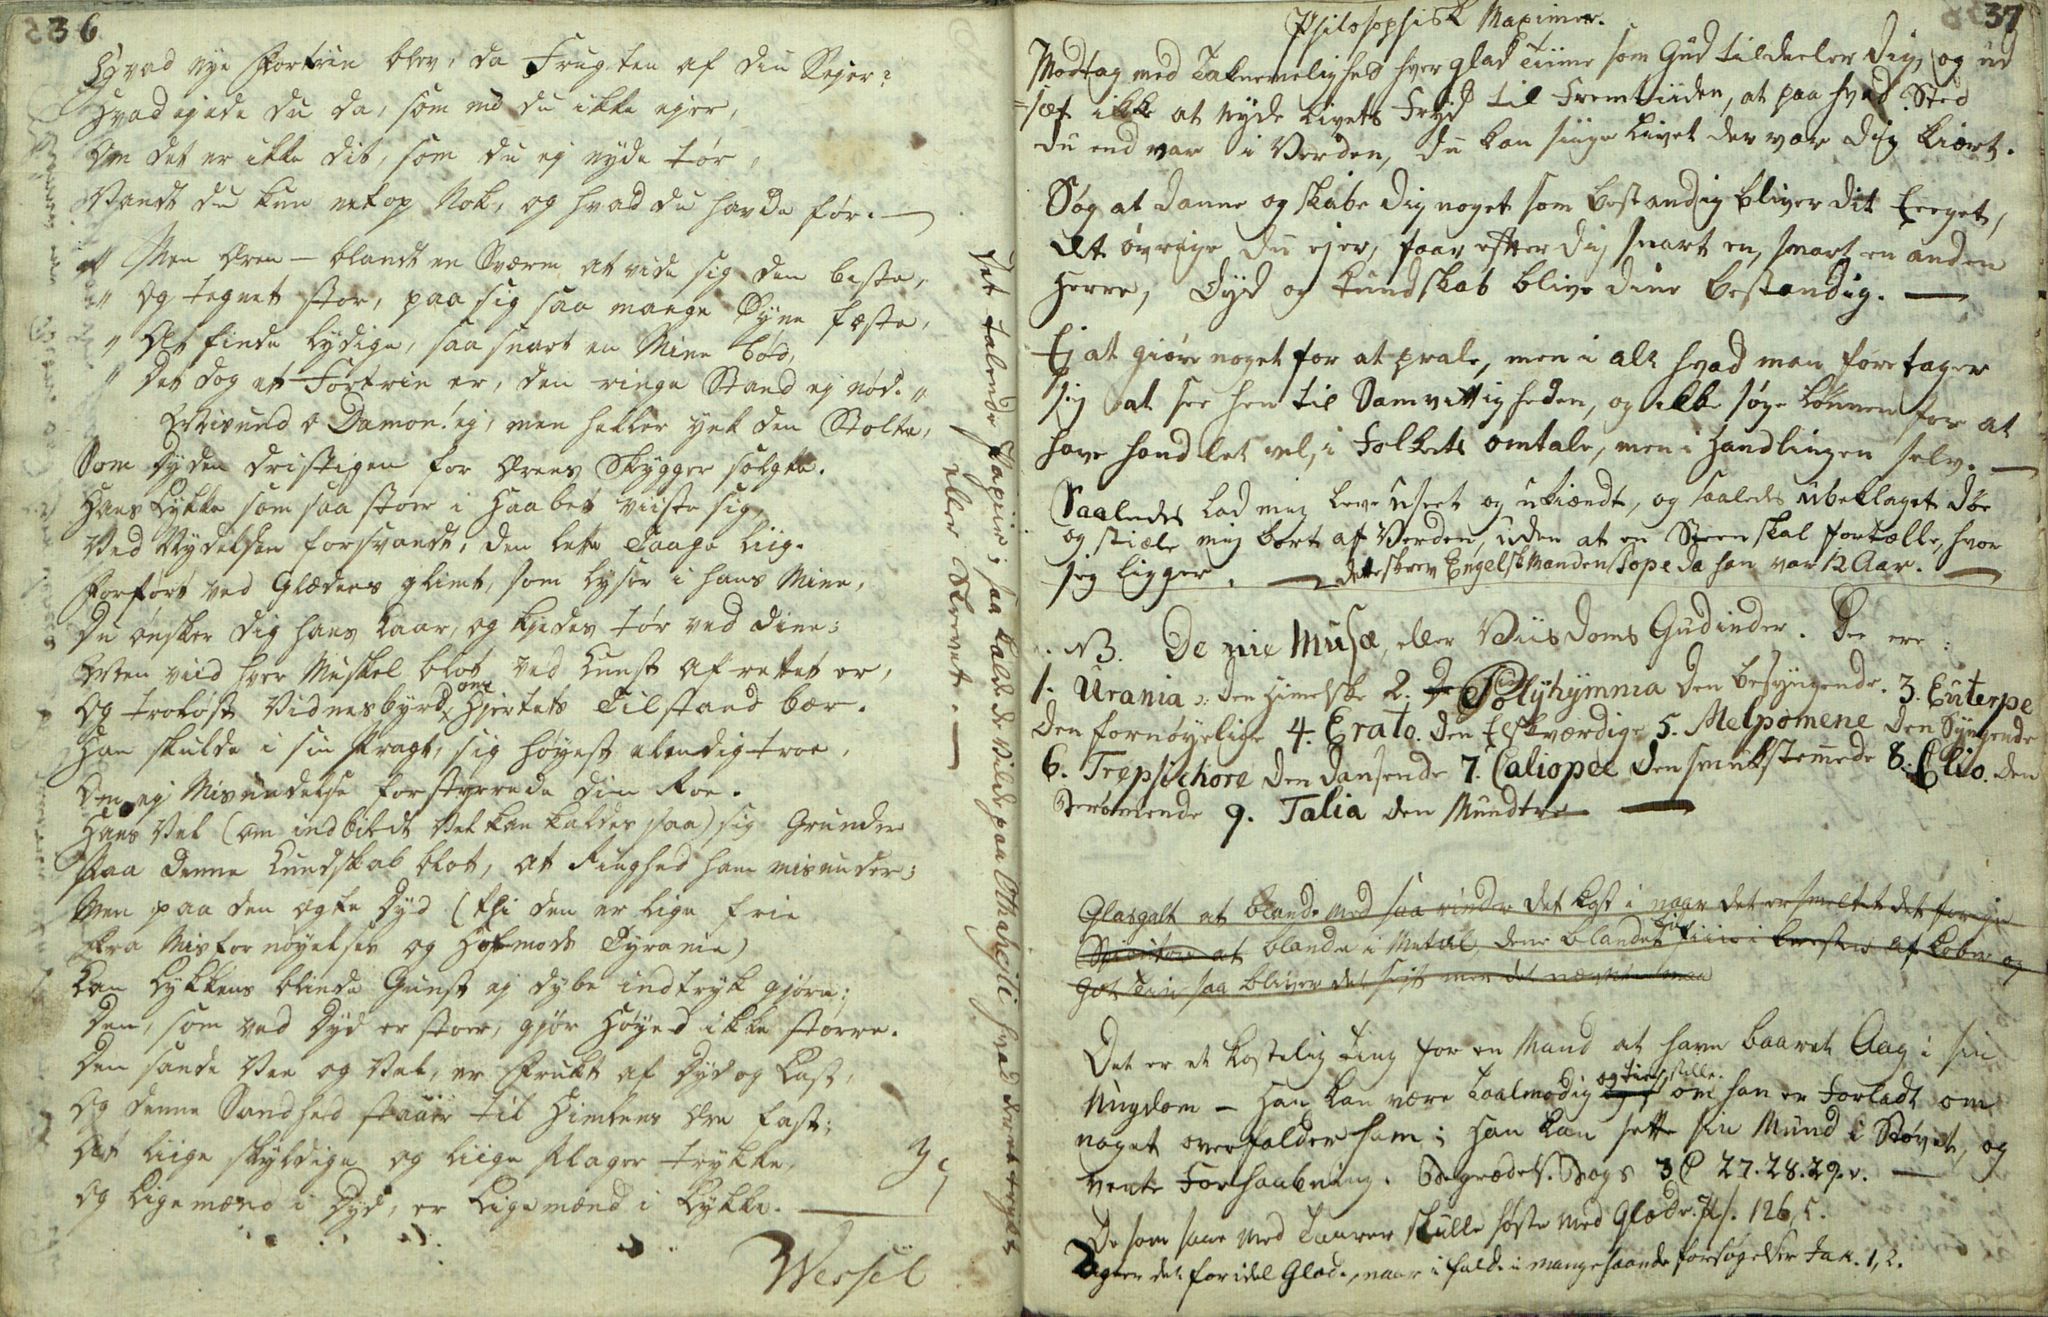 36
Hvad nye Fortrin blev, da Frugten af din Sejer?
Hvad ejede du da, som nu du ikke ejer,
Om det er ikke dit, som du ej nyde tør,
Vandt du kun netop Nok, og hvad du havde før. —
" Men Æren — blandt en Sværm at vide sig den beste,
" Og tegnet stor, paa sig saa mange Øyne fæste,
" At finde lydige, saa snart en Mine bød,
" Det dog et Fortrin er, den ringe Stand ej nød. "
Misund o Damon! ej, men heller ynk den Stolte,
Som Dyden dristigen for Ærens Skygger solgte.
Hans Lykke som saa stoer i Haabet viiste sig,
Ved Nydelsen forsvandt, den lette Taage liig.
Forført ved Glædens glimt, som lyser i hans Mine,
Du ønsker dig hans Kaar, og kjedes tør ved dine;
Men viid hver Muskel blot ved Kunst afrettet er,
Og troløst Vidnesbyrd om Hjertets Tilstand bær.
Han skulde i sin Pragt, sig høyest elendig troe,
Om ej Misundelse forstyrrede din Roe.
Hans Vel (om indbildt Vel kan kaldes saa) sig Grunder
Paa denne Kundskab blot, at Ringhed ham misunder;
Men paa den ægte Dyd (thi den er lige frie
Fra Misfornøyelses og Hofmods Tyranie)
Kan Lykkens blinde Gunst ej dybe indtryk gjøre;
Den, som ved Dyd er stoer, gjør Høyhed ikke større.
Den sande Vee og Vel, er Frukt af Dyd og Last,
Og denne Sandhed staaer til Himlens Ære fast;
At liige skyldige og liige Plager trykke,
Og Ligemænd i Dyd, er Ligemænd i Lykke. —
Wessel
Det talende Papiir; saa kaldte de Vilde paa Othaheiti hvad der er trykt
eller Skrevet. —
37
Philosophisk Maximer.
Modtag med Taknemelighed hver glad Tiime som Gud tildeeler dig, og ud
=sæt ikke at nyde Livets Fryd til Fremtiiden, at paa hvad Sted
du end var i Verden, du kan siige Livet der var dig kiært.
Søg at danne og skabe dig noget som bestandig bliver dit Eeget,
Alt øvrige du ejer, faar efter dig snart en, snart en anden
Herre, Dyd og Kundskab blive dine bestandig. —
Ej at giøre noget for at prale, men i alt hvad man foretager
sig at see hen til Samvittigheden, og ikke søge Lønnen for at
have handlet vel, i Folkets omtale, men i Handlingen selv. —
Saaledes lad mig leve useet og ukiændt, og saaledes ubeklaget døe
og stiæle mig bort af Verden, uden at en Steen skal fortælle, hvor
jeg ligger. — dette skrev Engelskmanden Pope da han var 12 Aar. —
NB. De nie Musæ, eller Viisdoms Gudinder. Dee ere:
1. Urania ɔ: den Himelske 2. Polyhymnia den besyngende. 3. Euterpe
den fornøyelige 4. Erato. den Elskværdige 5. Melpomene den Syngende
6. Trepsichore den dansende 7. Caliopee den smukstemede 8. Clio. den
Berømende 9. Talia den Muntre —
Glasgalt at blande med saa rinder det kost i naar det er smeltet det forige
at blande i Metal, dene blandet Tin i af Kober og
got Tin saa bliver det
Det er et kostelig Ting for en Mand at have baaret Aag i sin
Ungdom — Han kan være Taalmodig og tie stille. om han er Forladt om
noget overfalder ham; Han kan sette sin Mund i Støvet, og
vente Forhaabning. Begrædels. Bogs 3 C 27. 28. 29. v. —
De som saae med Taarer skulle høste med Glæde. Ps. 126, 5.
Agter det for idel Glæde, naar i falde i mangehaande forsøgelser Jak. 1, 2.